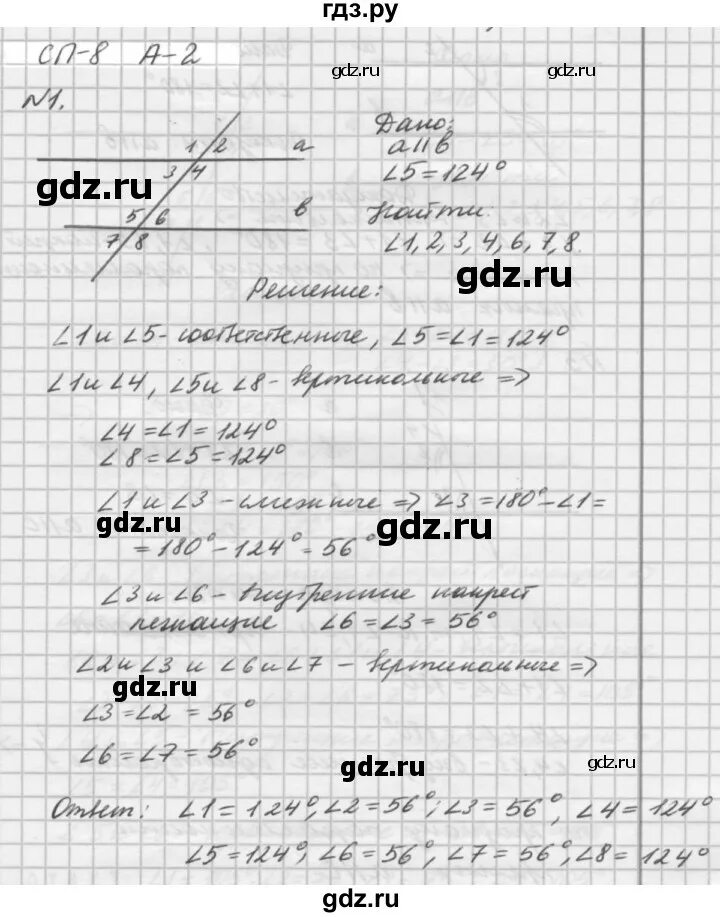 гдз.ру
СП-8 А-2
gdz.ru
№1.
1 2 a
3 4
5 6 в
7 8
gdz.ru
Дано:
a || в
∠5 = 124°
Найти:
∠1, 2, 3, 4, 6, 7, 8.
gdz.ru
Решение:
∠1 и ∠5 - соответственные, ∠5 = ∠1 = 124°
∠1 и ∠4, ∠5 и ∠8 - вертикальные =>
∠4 = ∠1 = 124°
∠8 = ∠5 = 124°
∠1 и ∠3 - смежные => ∠3 = 180° - ∠1 =
gdz.ru gdz.ru
= 180° - 124° = 56°
∠3 и ∠6 - внутренние накрест
лежащие ∠6 = ∠3 = 56°
∠2 и ∠3 и ∠6 и ∠7 - вертикальные =>
gdz.ru
∠3 = ∠2 = 56°
∠6 = ∠7 = 56°
gdz.ru
gdz.ru
Ответ: ∠1 = 124°, ∠2 = 56°; ∠3 = 56°, ∠4 = 124°
∠5 = 124°; ∠6 = 56°, ∠7 = 56°, ∠8 = 124°
gdz.ru